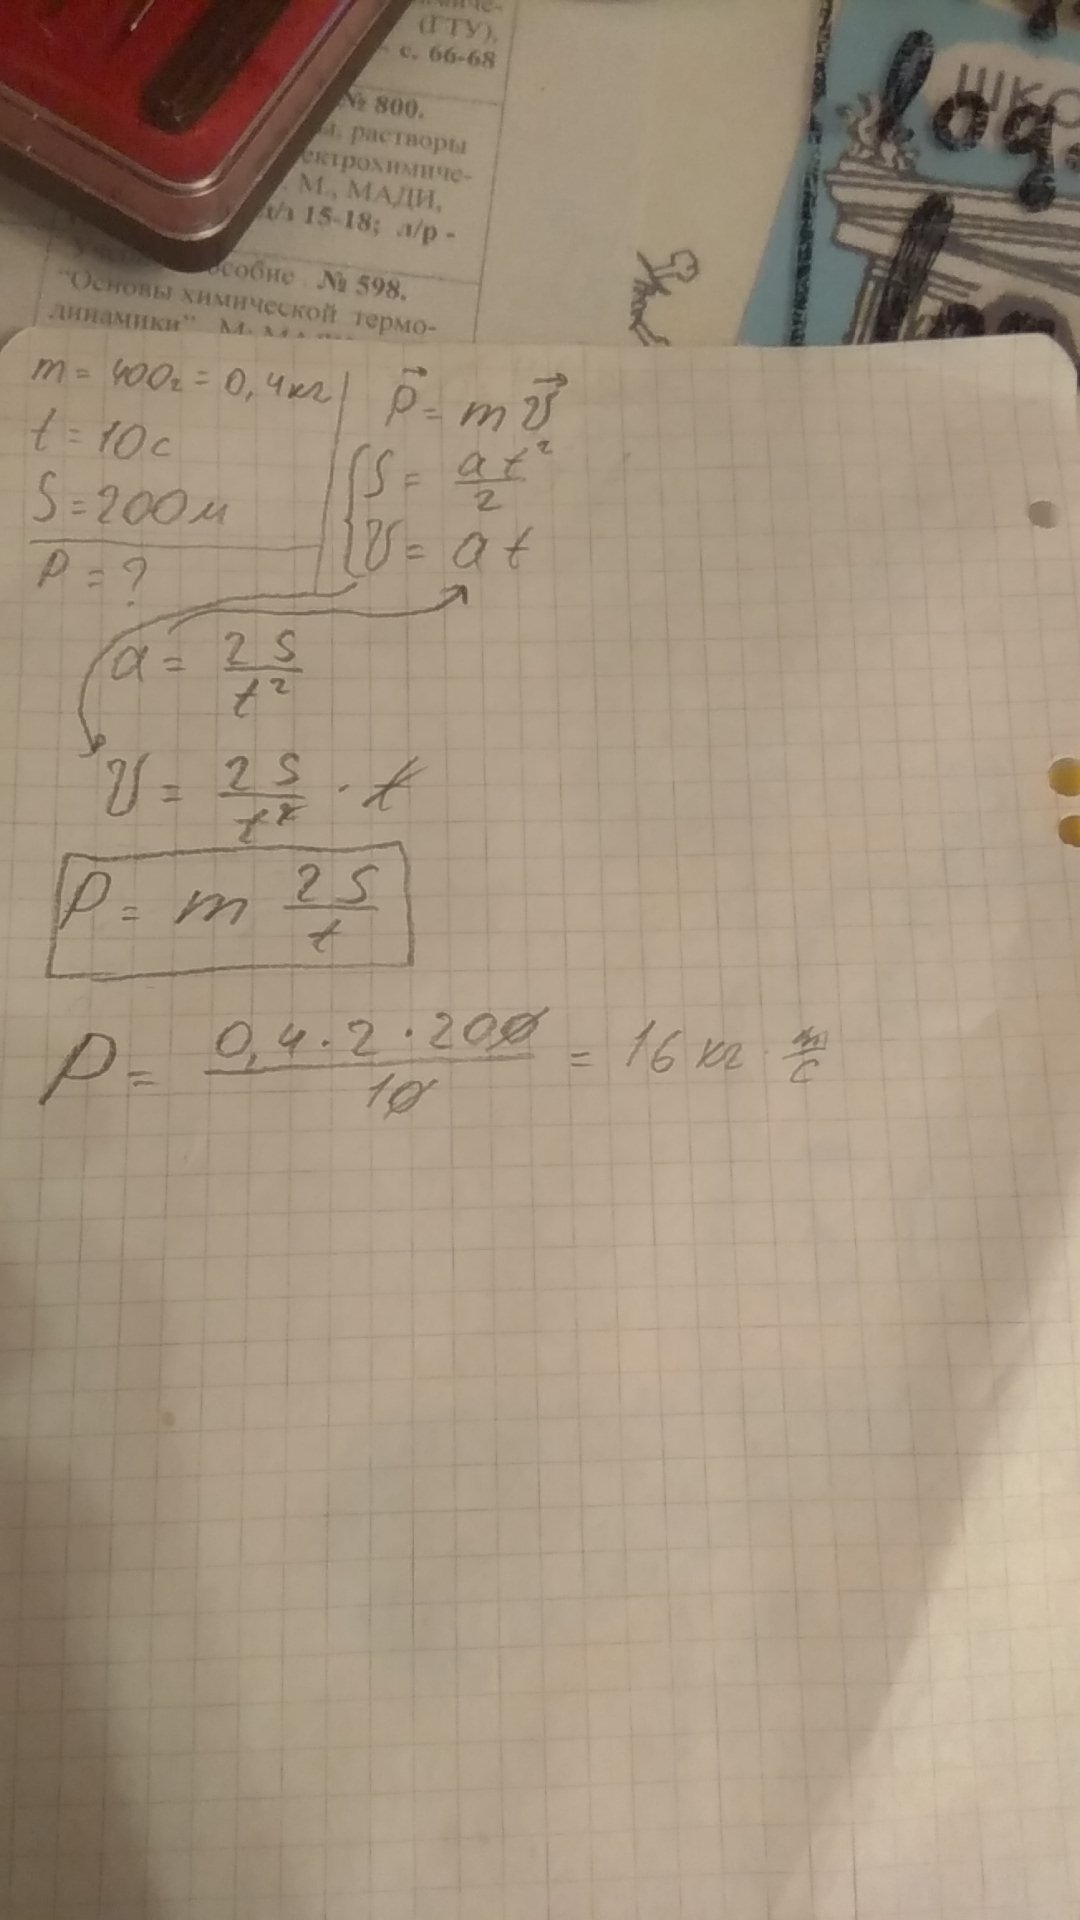 (ГТУ),
с. 66-68
№ 800.
растворы
М., МАДИ,
15-18; л/р -
№ 598.
"Основы химической термо-
динамики"
ШКО
m = 400г = 0,4кг
t = 10с
S = 200м
P = ?
P⃗ = m v⃗
S = at²/2
v = at
a = 2S/t²
v = 2S/t² · t
P = m 2S/t
P = 0,4·2·200/10 = 16 кг · m/с